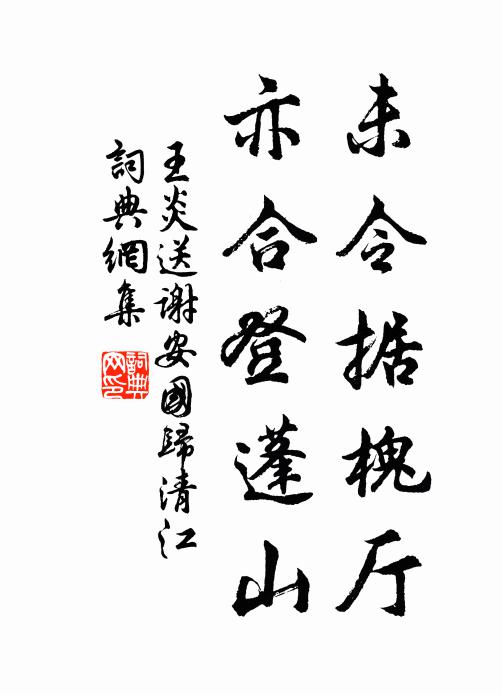 未令据槐厅
亦合登蓬山
王炎送谢安國歸清江
詞典網集
詞典网印